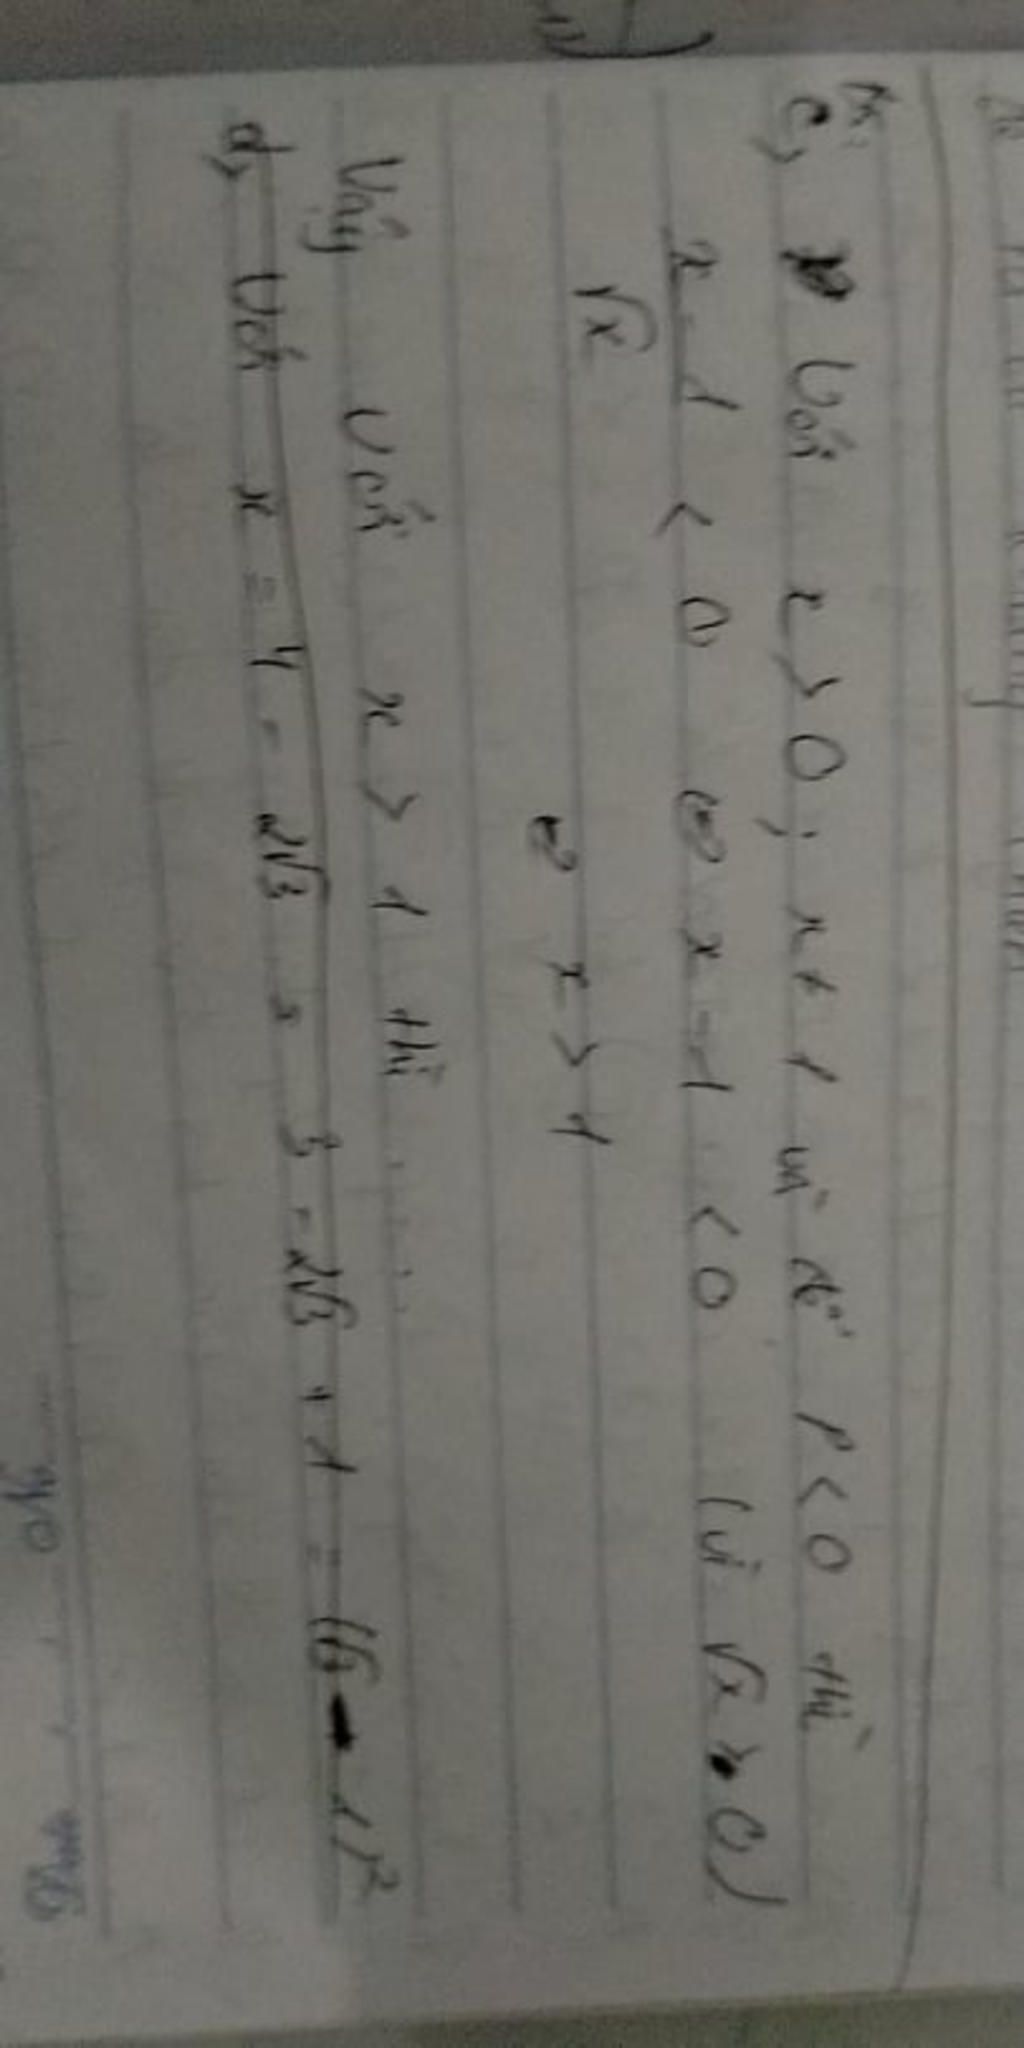 c, Với x > 0; x ≠ 1 và để P < 0 thì
x - 1 < 0 ⇔ x - 1 < 0 (vì √x > 0)
√x
⇔ x > 1
Vậy với x > 1 thì .....
d, Với x = 4 - 2√3 = 3 - 2√3 + 1 = (√3 - 1)²